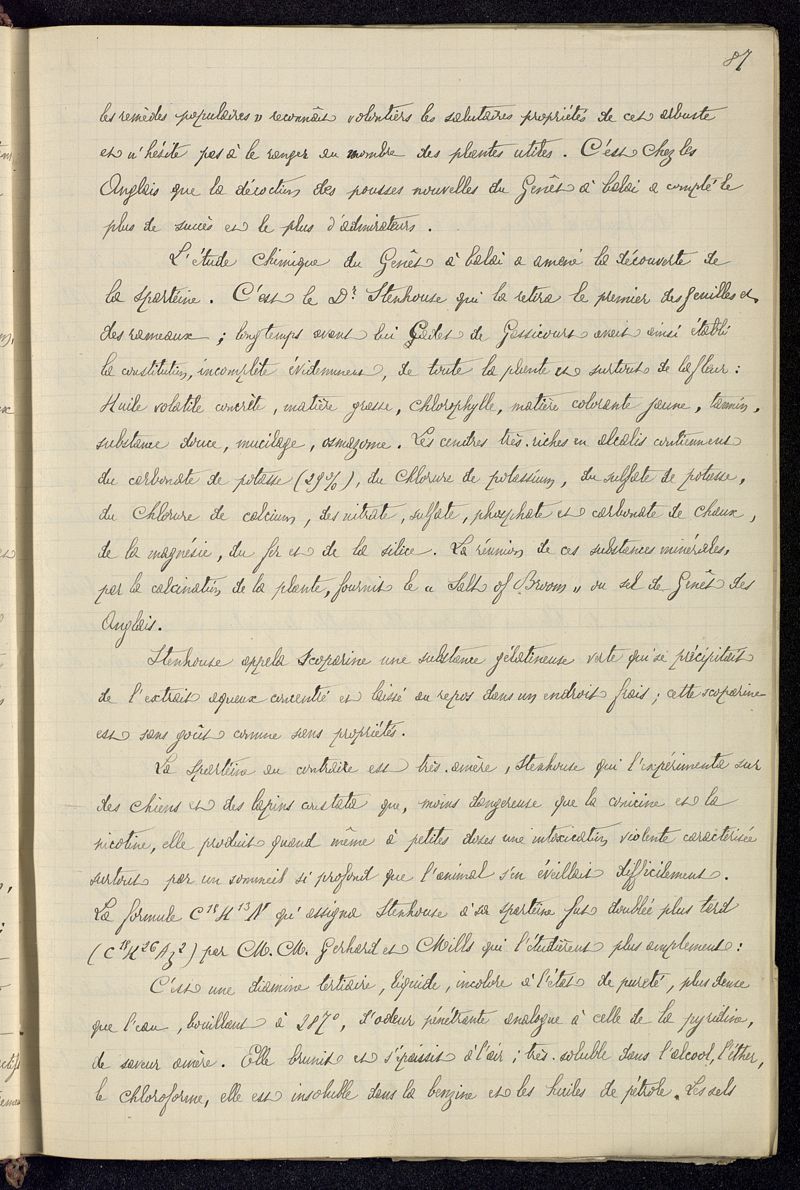 87
les remèdes populaires » reconnaît volontiers les salutaires propriétés de cet arbuste
et n'hésite pas à le ranger au nombre des plantes utiles. C'est chez les
Anglais que la décoction des pousses nouvelles du Genêt à balai a compté le
plus de succès et le plus d'admirateurs.
L'étude chimique du Genêt à balai a amené la découverte de
la spartéine. C'est le Dr Stenhouse qui la retira le premier des feuilles et
des rameaux ; longtemps avant lui Cadet de Gassicourt avait ainsi établi
la constitution, incomplète évidemment, de toute la plante et surtout de la fleur :
Huile volatile concrète, matière grasse, chlorophylle, matière colorante jaune, tannin,
substance douce, mucilage, osmazome. Les cendres très riches en alcalis contiennent
du carbonate de potasse (29%), du chlorure de potassium, du sulfate de potasse,
du chlorure de calcium, des nitrate, sulfate, phosphate et carbonate de chaux,
de la magnésie, du fer et de la silice. La réunion de ces substances minérales,
par la calcination de la plante, fournit le « Salt of Broom » ou sel de Genêt des
Anglais.
Stenhouse appela Scoparine une substance gélatineuse verte qui se précipitait
de l'extrait aqueux concentré et laissé au repos dans un endroit frais ; cette scoparine
est sans goût comme sans propriétés.
La Spartéine au contraire est très amère, Stenhouse qui l'expérimenta sur
des chiens et des lapins constata que, moins dangereuse que la conicine et la
nicotine, elle produit quand même à petites doses une intoxication violente caractérisée
surtout par un sommeil si profond que l'animal s'en éveillait difficilement.
La formule C¹⁸H¹³N qu'assigna Stenhouse à sa spartéine fut doublée plus tard
(C¹⁸H²⁶Az²) par M.M. Gerhard et Mills qui l'étudièrent plus amplement :
C'est une diamine tertiaire, liquide, incolore à l'état de pureté, plus dense
que l'eau, bouillant à 287°, d'odeur pénétrante analogue à celle de la pyridine,
de saveur amère. Elle brunit et s'épaissit à l'air ; très soluble dans l'alcool, l'éther,
le chloroforme, elle est insoluble dans la benzine et les huiles de pétrole. Les sels